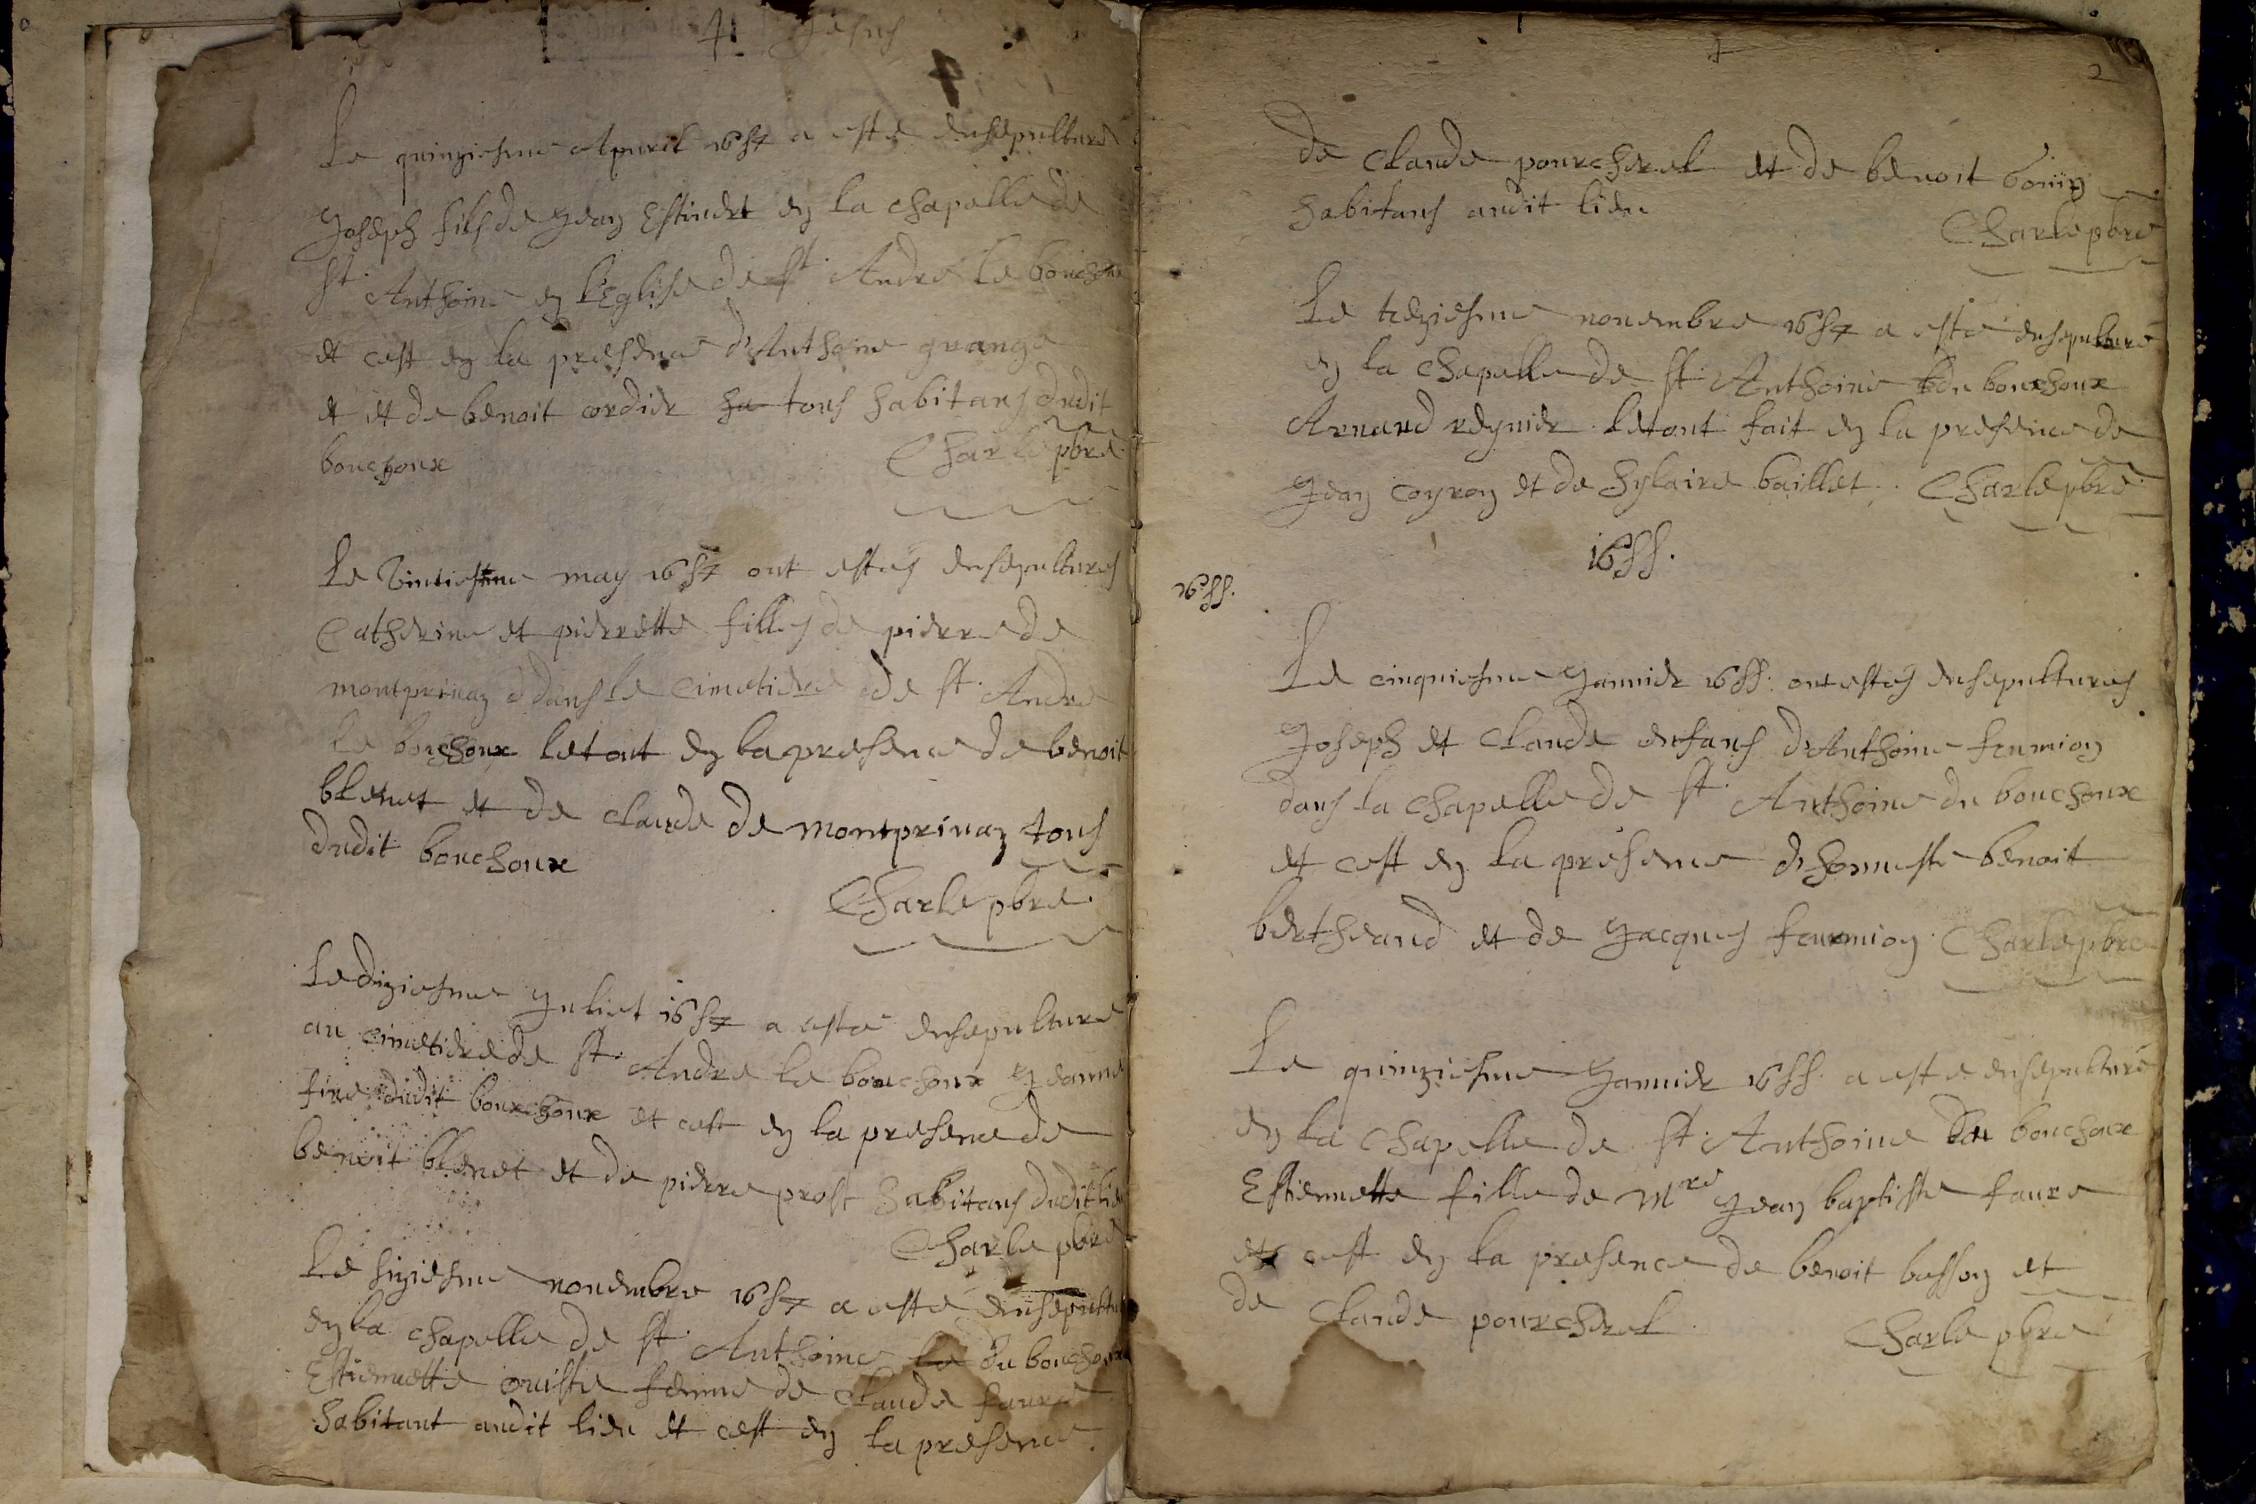 Jesus
Le quinziesme Apuril 1654 a esté ensepulturé
Joseph fils de Jean Estiuent en la chapelle de
st. Anthoine en l'Eglise de st. André le bouchoux
et cest en la presence d'Anthoine grange
et et de benoit cordier ha tous habitans dudit
bouchoux Charle pbre
Le vintiesme may 1654 ont estes ensepultures
Catherine et pierrette filles de pierre de
montpriuaz dans le cimetiere de st. André
le bouchoux le tout en la presence de benoit
blenet et de claude de montpriuaz tous
dudit bouchoux
Charle pbre
Le diziesme Juliet 1654 a esté ensepulturé
au cimetiere de st. André le bouchoux Jeanne
fine dudit bouxhoux et cest en la presence de
benoit blenet et de pierre prost habitans dudit lieu
Charle pbre
Le siziesme nouembre 1654 a esté ensepulturé
en la chapelle de st. Anthoine le du bouchoux
Estiennette ouiste femme de claude faure
habitant audit lieu et cest en la presence
2
de claude pourcherel et de benoit bouin
habitans audit lieu
Charle pbre
Le treziesme nouembre 1654 a esté ensepulturé
en la chapelle de st. Anthoine du bouxhoux
Arnaud reynier le tout fait en la presence de
Jean coyron et de hylaire baillet. Charle pbre
1655.
1655.
Le cinquiesme Januier 1655. ont estes ensepultures
Joseph et claude enfans d'Anthoine feurmion
dans la chapelle de st. Anthoine du bouchoux
et cest en la presence d'honneste benoit
bertheaud et de Jacques feurmion Charle pbre
Le quinziesme Januier 1655. a esté ensepulturé
en la chapelle de st. Anthoine du bouchoux
Estiennette fille de Mre Jean baptiste faure
et cest en la presence de benoit basson et
de claude pourcherel. Charle pbre